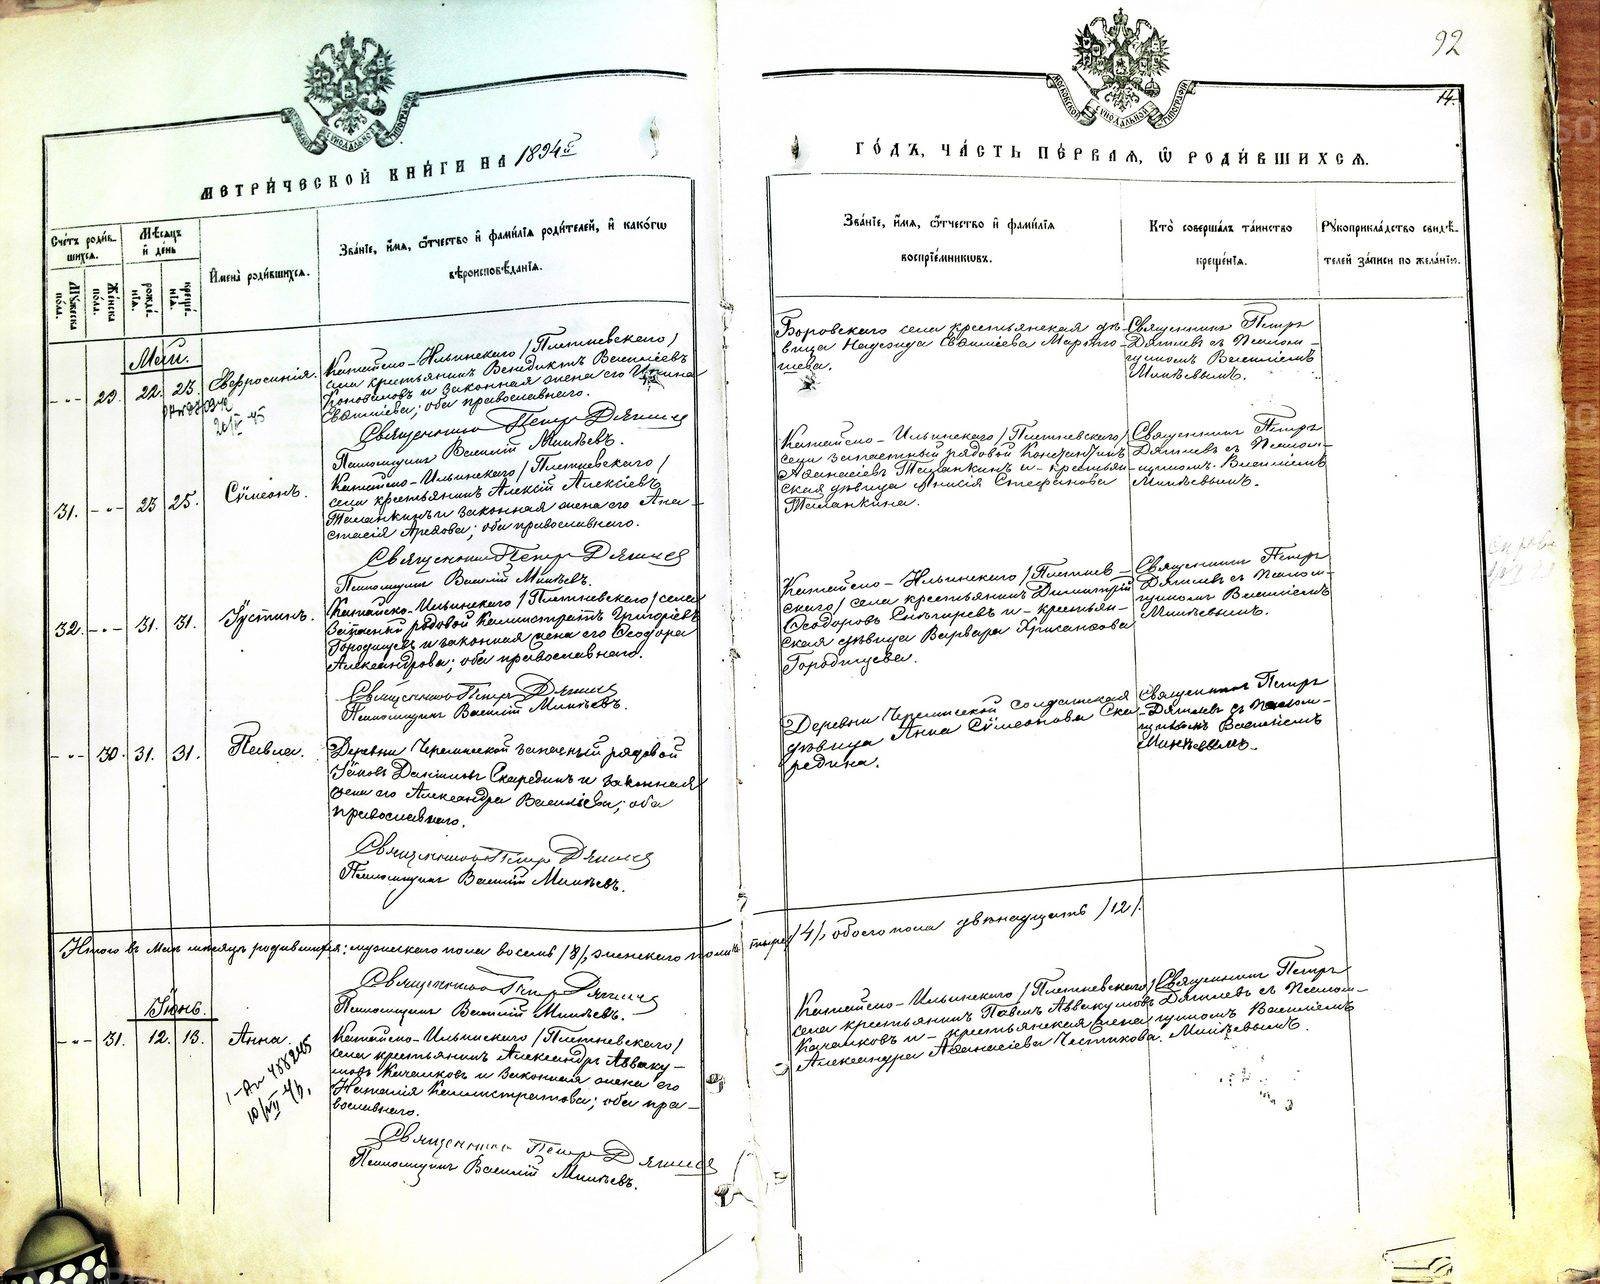 92
14.
МОСКОВСКОЙ СѴНОДАЛЬНОЙ ТИПОГРАФІИ
МОСКОВСКОЙ СѴНОДАЛЬНОЙ ТИПОГРАФІИ
МЕТРИ́ЧЕСКОЙ КНИ́ГИ НА 1894й
ГО́ДЪ, ЧА́СТЬ ПЕ́РВАЯ, Ѡ РОДИ́ВШИХСЯ.
Сче́тъ роди́в-
шихся.
Мѣ́сяцъ
и҆ де́нь
Мꙋ́жеска
по́ла.
Же́нска
по́ла.
рожде́-
нїя.
креще́-
нїя.
И҆мена̀ роди́вшихся.
Зва́нїе, и҆́мя, ѻ҆́тчество и҆ фами́лїѧ роди́телей, и҆ како́гѡ
вѣроисповѣ́данїѧ.
Зва́нїе, и҆́мя, ѻ҆́тчество и҆ фами́лїѧ
воспрїе́мникѡвъ.
Кто̀ соверша́лъ та́инство
креще́нїѧ.
Рꙋкоприкла́дство свидѣ́-
телей за́писи по жела́нїю.
Май.
- „ - 29. 22. 23. Евфросинія.
Катайско-Ильинскаго /Плетневскаго/
села крестьянинъ Венедиктъ Василіевъ
Коновалов и законная жена его Ирина
Евѳиміева; оба православнаго.
Священникъ Петръ Дягилев
Псаломщикъ Василій Минѣевъ.
Боровскаго села крестьянская дѣ-
вица Надежда Евѳиміева Марты-
шева.
Священникъ Петръ
Дягилевъ съ псалом-
щикомъ Василіемъ
Минѣевымъ.
31. - „ - 23 25. Сѷмеонъ.
Катайско-Ильинскаго /Плетневскаго/
села крестьянинъ Алексій Алексіевъ
Таланкинъ и законная жена его Ана-
стасія Арефова; оба православнаго.
Священникъ Петръ Дягилев
Псаломщикъ Василій Минѣевъ.
Катайско-Ильинскаго /Плетневскаго/
села запасный рядовой Константинъ
Аѳанасіевъ Таланкинъ и крестьян-
ская дѣвица Анисія Стефанова
Таланкина.
Священникъ Петръ
Дягилевъ съ псалом-
щикомъ Василіемъ
Минѣевымъ.
32. - „ - 31. 31. Іустинъ.
Катайско-Ильинскаго /Плетневскаго/ села
запасный рядовой Каллистратъ Григоріевъ
Городищевъ и законная жена его Ѳеодора
Александрова; оба православнаго.
Священникъ Петръ Дягилев
Псаломщикъ Василій Минѣевъ.
Катайско-Ильинскаго /Плетнев-
скаго/ села крестьянинъ Димитрій
Ѳеодоровъ Снѣгиревъ и крестьян-
ская дѣвица Варвара Хрисанѳова
Городищева.
Священникъ Петръ
Дягилевъ съ псалом-
щикомъ Василіемъ
Минѣевымъ.
- „ - 30. 31. 31. Павла.
Деревни Черемисской запасный рядовой
Іаковъ Даніиловъ Скарединъ и законная
жена его Александра Василіева; оба
православнаго.
Священникъ Петръ Дягилев
Псаломщикъ Василій Минѣевъ.
Деревни Черемисской солдатская
дѣвица Анна Сѷмеонова Ска-
редина.
Священникъ Петръ
Дягилевъ съ псалом-
щикомъ Василіемъ
Минѣевымъ.
Итого въ маѣ мѣсяцѣ родившихся: мужескаго пола восемь /8/, женскаго пола четыре /4/, обоего пола двѣнадцать /12/.
Священникъ Петръ Дягилев
Псаломщикъ Василій Минѣевъ.
Іюнь.
- „ - 31. 12. 13. Анна.
Катайско-Ильинскаго /Плетневскаго/
села крестьянинъ Александръ Авваку-
мовъ Качалковъ и законная жена его
Наталія Каллистратова; оба пра-
вославнаго.
Священникъ Петръ Дягилев
Псаломщикъ Василій Минѣевъ.
Катайско-Ильинскаго /Плетневскаго/
села крестьянинъ Павелъ Аввакумовъ
Качалковъ и крестьянская жена
Александра Аѳанасіева Честикова.
Священникъ Петръ
Дягилевъ съ псалом-
щикомъ Василіемъ
Минѣевымъ.